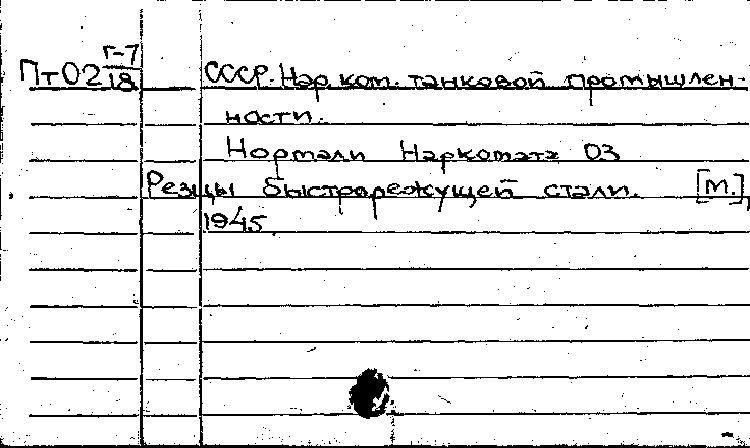 Пт02 Г-7/18 СССР. Нар. ком. танковой промышлен-
ности.
Нормали Наркомата 03
Резцы быстрорежущей стали. [М.],
1945.